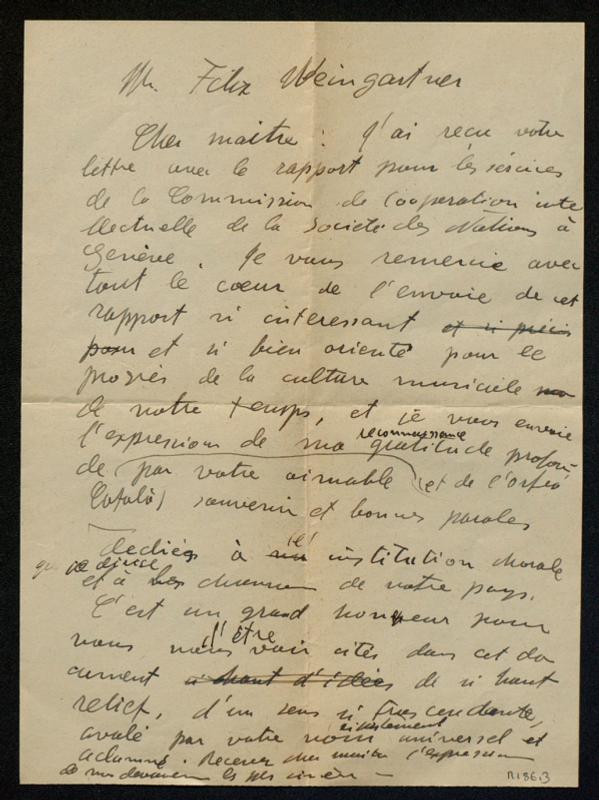 Mr Felix Weingartner
Cher maitre: J'ai reçu votre
lettre avec le rapport pour les services
de la Commission de Cooperation inte
llectuelle de la Societé des Nations à
Genève. Je vous remercie avec
tout le cœur de l'envoie de cet
rapport si interessant et si précis
pour et si bien orienté pour le
progrés de la culture musicale
de notre temps, et je vous envoie
l'expression de ma reconnaissance gratitude profon
de par votre aimable (et de l'orfeó
Català) souvenir et bonnes paroles
dediées à institution chorale
que je dirige
et à les chansons de notre pays.
C'est un grand honneur pour
nous d'être cités dans cet do
cument de si haut
relief, d'un sens si trascendente,
avalé par votre nom si justement universel et
aclamé. Recever cher maitre l'expression
les plus sincère
R186.3